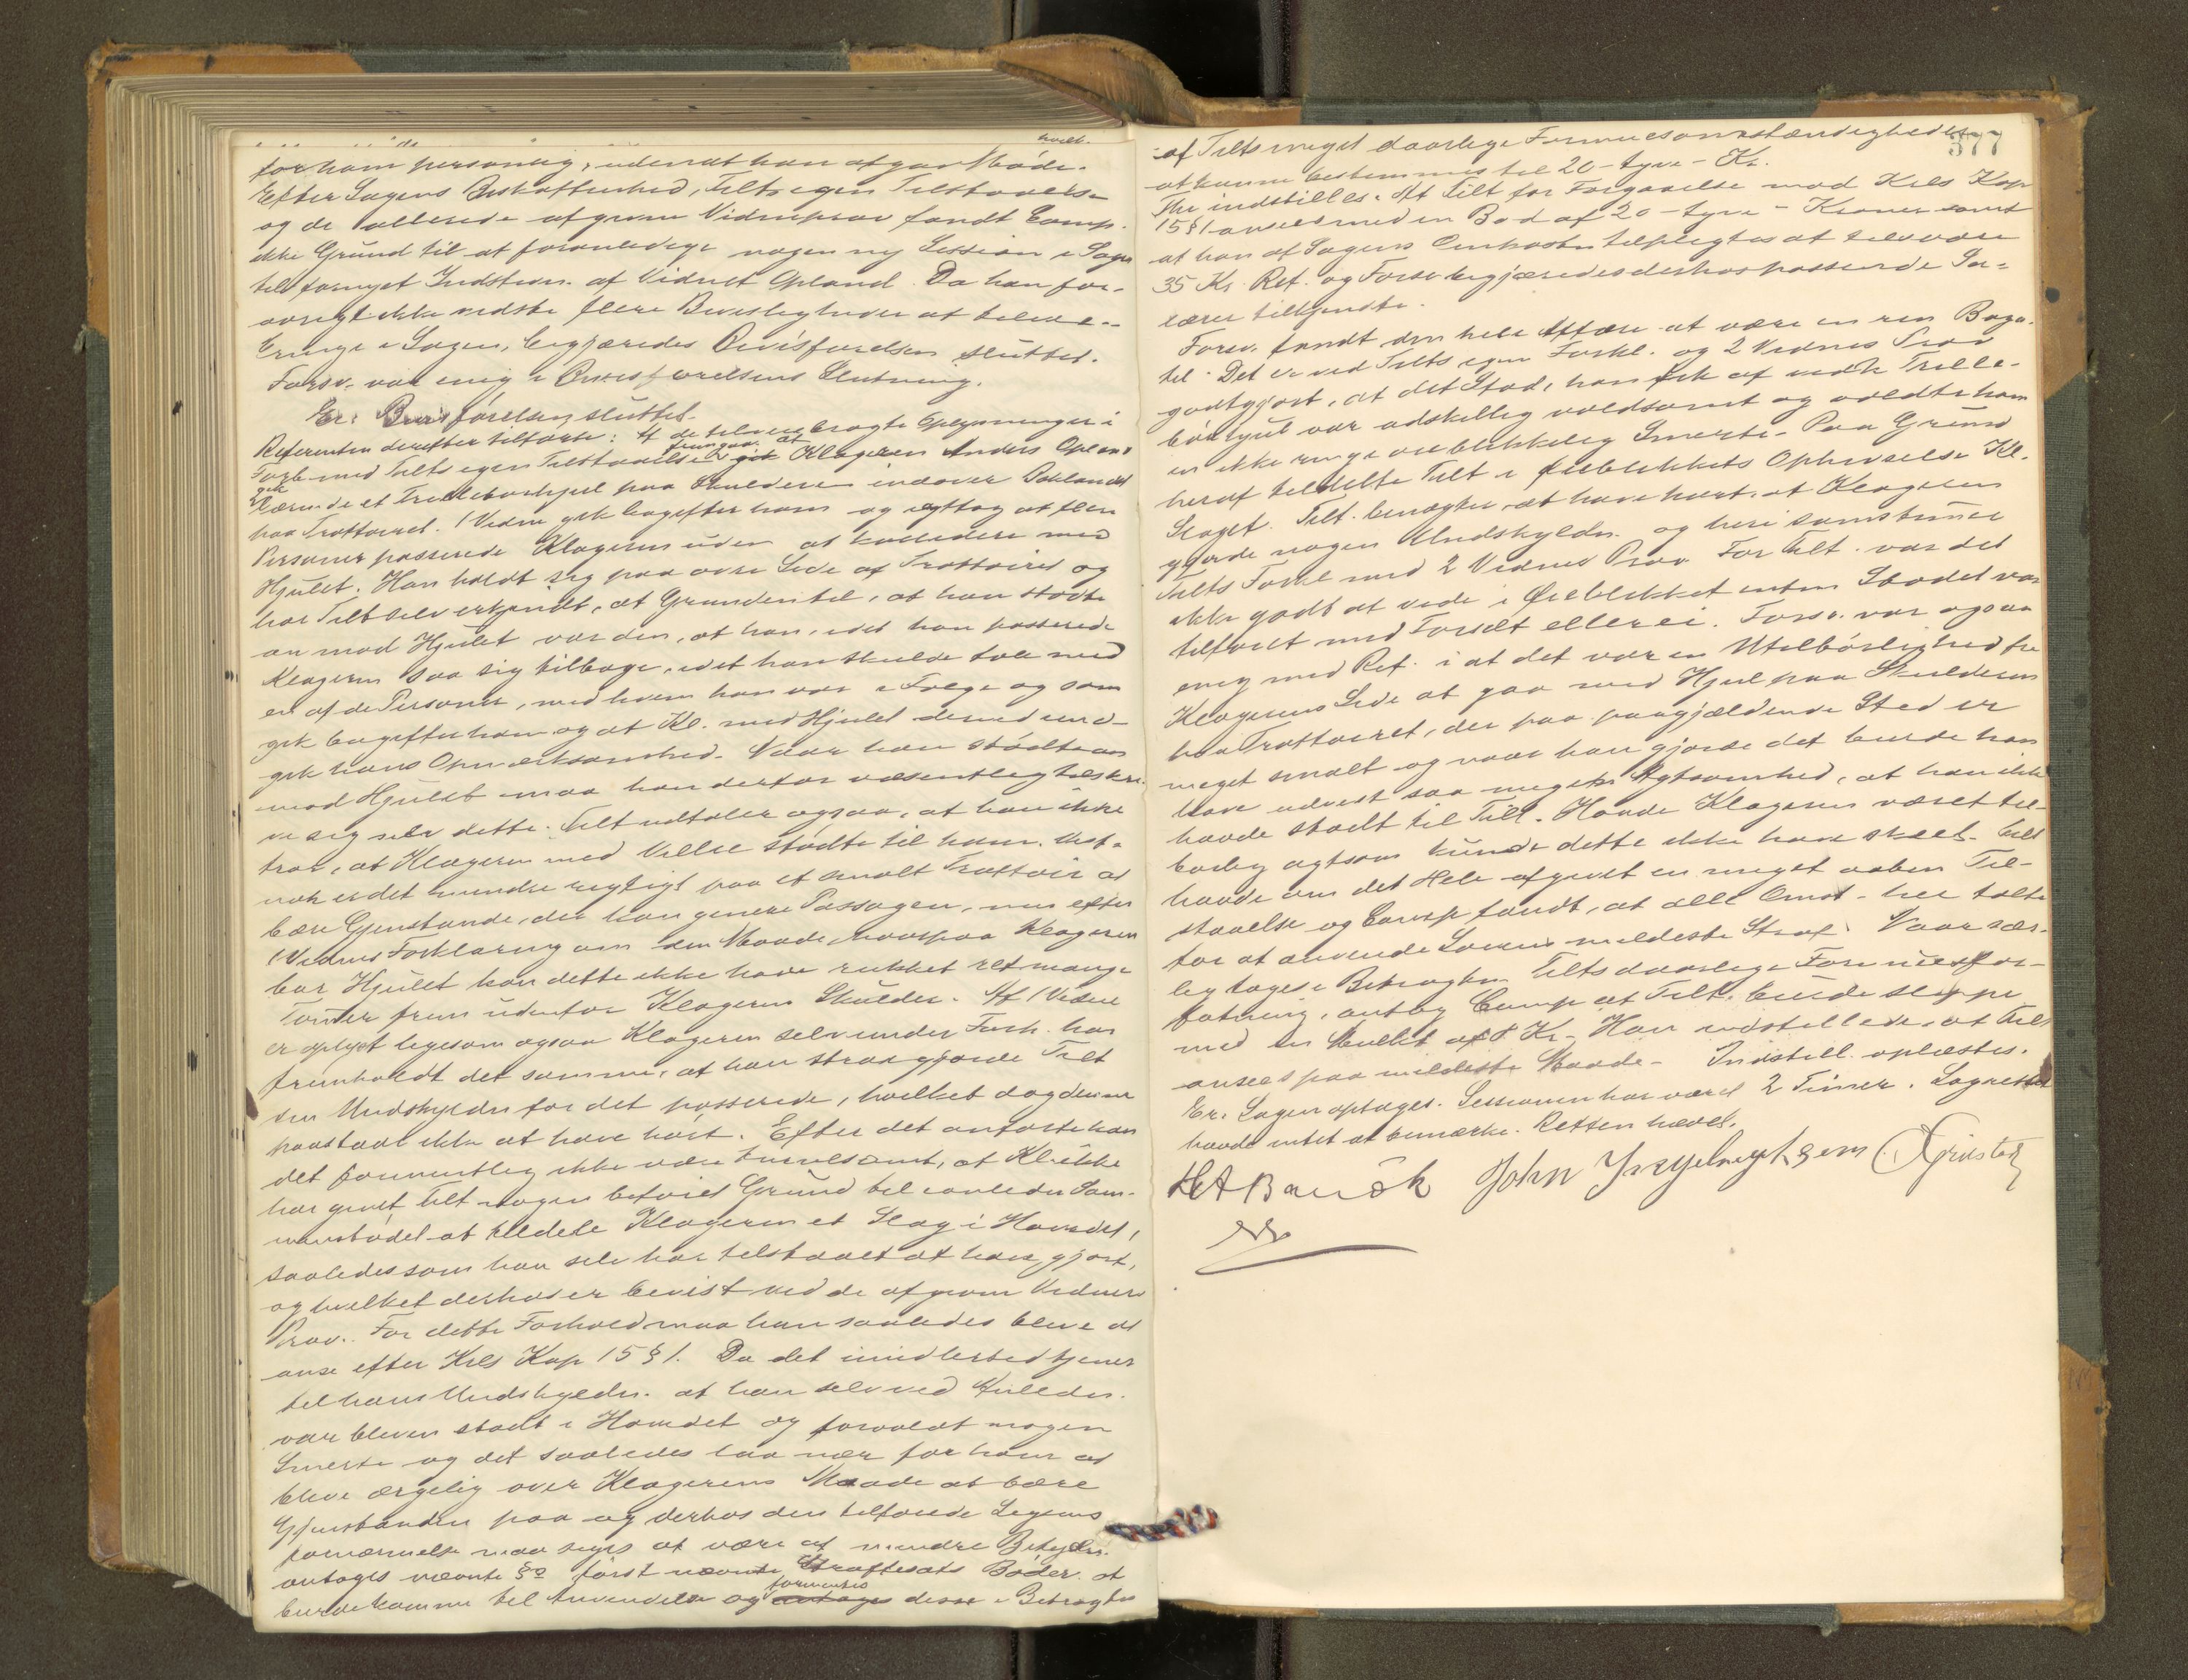 hvilk.
for ham personlig, udenat han afgav Møde.
Efter Sagens Beskaffenhed, Tilts egen Tilstaaelse
og de allerede afgivne Vidneprov fandt Comp.
ikke Grund til at foranledige nogen ny Session i Sagen
til fornyet Indstevn. af Vidnet Opland. Da han for-
øvrigt ikke vidste flere Bevisligheder at tilveie-
bringe i Sagen, begjæredes Bevisførelsen sluttet.
Forsv. var enig i Bevisførelsens Slutning.
Er: Bevisførelsen sluttet.
Referenten derefter tilførte: Af de tilveiebragte Oplysninger i
Forb. med Tilts egen Tilstaaelse fremgaar at Klageren Anders Opland
gik bærende et Trillebørhjul paa Skulderen indover Paklandet
paa Trottoiret. 1 Vidne gik bagefter ham og iagttog at flere
Personer passerede Klageren uden at kollidere med
Hjulet. Han holdt sig paa øvre Side af Trottoiret og
har Tilt selv erkjendt, at Grunden til, at han stødte
an mod Hjulet var den, at han, idet han passerede
Klageren saa sig tilbage, idet han skulde tale med
en af de Personer, med hvem han var i Følge og som
gik bagefter ham og at Kl. med Hjulet derved und-
gik hans Opmærksomhed. Naar han stødte an
mod Hjulet maa han derfor væsentlig tilskri-
ve sig selv dette. Tilt udtaler ogsaa, at han ikke
tror, at Klageren med Villie stødte til ham. Vist-
nok er det mindre rigtigt paa et smalt Trottoir at
bære Gjenstande, der kan genere Passagen, men efter
1 Vidnes Forklaring om den Maade, hvorpaa Klageren
bar Hjulet kan dette ikke have rukket ret mange
Tommer frem udenfor Klagerens Skulder. Af 1 Vidne
er oplyst ligesom ogsaa Klageren selv under Forh. har
fremholdt det samme, at han strax gjorde Tilt
sin Undskyldn. for det passerede, hvilket dog denne
paastaar ikke at have hørt. Efter det anførte kan
det formentlig ikke være tvivlsomt, at Kl. ikke
har givet Tilt nogen beføiet Grund til i anledn. Sam-
menstødet at tildele Klageren et Slag i Hovedet,
saaledes som han selv har tilstaaet at have gjort,
og hvilket derhos er bevist ved de afgivne Vidners
Prov. For dette Forhold maa han saaledes blive at
anse efter Krls Kap 15 § 1. Da det imidlertid tjener
til hans Undskyldn. at han selv ved Anledn.
var bleven stødt i Hovedet og forvoldt nogen
Smerte og det saaledes laa nær for ham at
blive ærgelig over Klagerens Maade at bære
Gjenstanden paa og derhos den tilføiede Legems
fornærmelse maa siges at være af mindre Betydn.
antages nævnte §s først nævnte Straffesats Bøder at
burde komme til Anvendelse og formentes disse i Betragtn
377
af Tilts meget daarlige Formuesomstændigheder
at kunne bestemmes til 20 - tyve - Kr.
Thi indstilles: At Tilt for Forgaaelse mod Krls Kap
15 § 1 ansees med en Bod af 20 - tyve - Kroner samt
at han af Sagens Omkostn. tilpligtes at udrede
35 Kr. Ref. og Forsv. begjæredes derhos passende Sa-
lærer tilkjendte.
Forsv. fandt den hele Affære at være en ren Baga-
tel. Det er ved Tilts egen Forkl. og 2 Vidnes Prov
godtgjort, at det Stød, han fik af vedk Trille-
børhjul var adskillig voldsomt og voldte ham
en ikke ringe øieblikkelig Smerte. Paa Grund
heraf tildelte Tilt i Øieblikkets Ophidselse Kl.
Slaget. Tilt. benægter, at have hørt, at Klageren
gjorde nogen Undskyldn. og heri samstemmer
Tilts Forkl med 2 Vidnes Prov. For Tilt. var det
ikke godt at vide i Øieblikket enten Stødet var
tilføiet med Forsæt eller ei. Forsv. var ogsaa
enig med Ref. i at det var en Utilbørlighed fra
Klagerens Side at gaa med Hjul paa Skulderen
paa Trottoiret, der paa paagjældende Sted er
meget smalt og naar han gjorde det burde han
have udvist saa megen Agtsomhed, at han ikke
havde stødt til Tilt. Havde Klageren været til-
børlig agtsom kunde dette ikke have skeet. Tilt
havde om det Hele afgivet en meget aaben Til-
staaelse og Comp. fandt, at alle Omst. her talte
for at anvende Lovens mildeste Straf. Naar sær-
lig tages i Betragtn. Tilts daarlige Formuesfor-
fatning, antog Comp. at Tilt. burde slippe
med en Mulkt af 8 Kr. Han indstillede, at Tilt
ansees paa mildeste Maade. Indstill. oplæstes.
Er: Sagen optages. Sessionen har varet 2 Timer. Lagrettet
havde intet at bemærke. Retten hævet.
John Ingebrigtsen